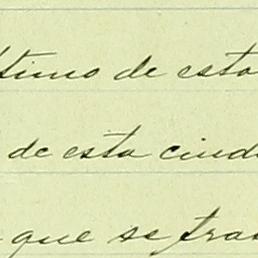 timo de esta
de esta ciud
que se tras